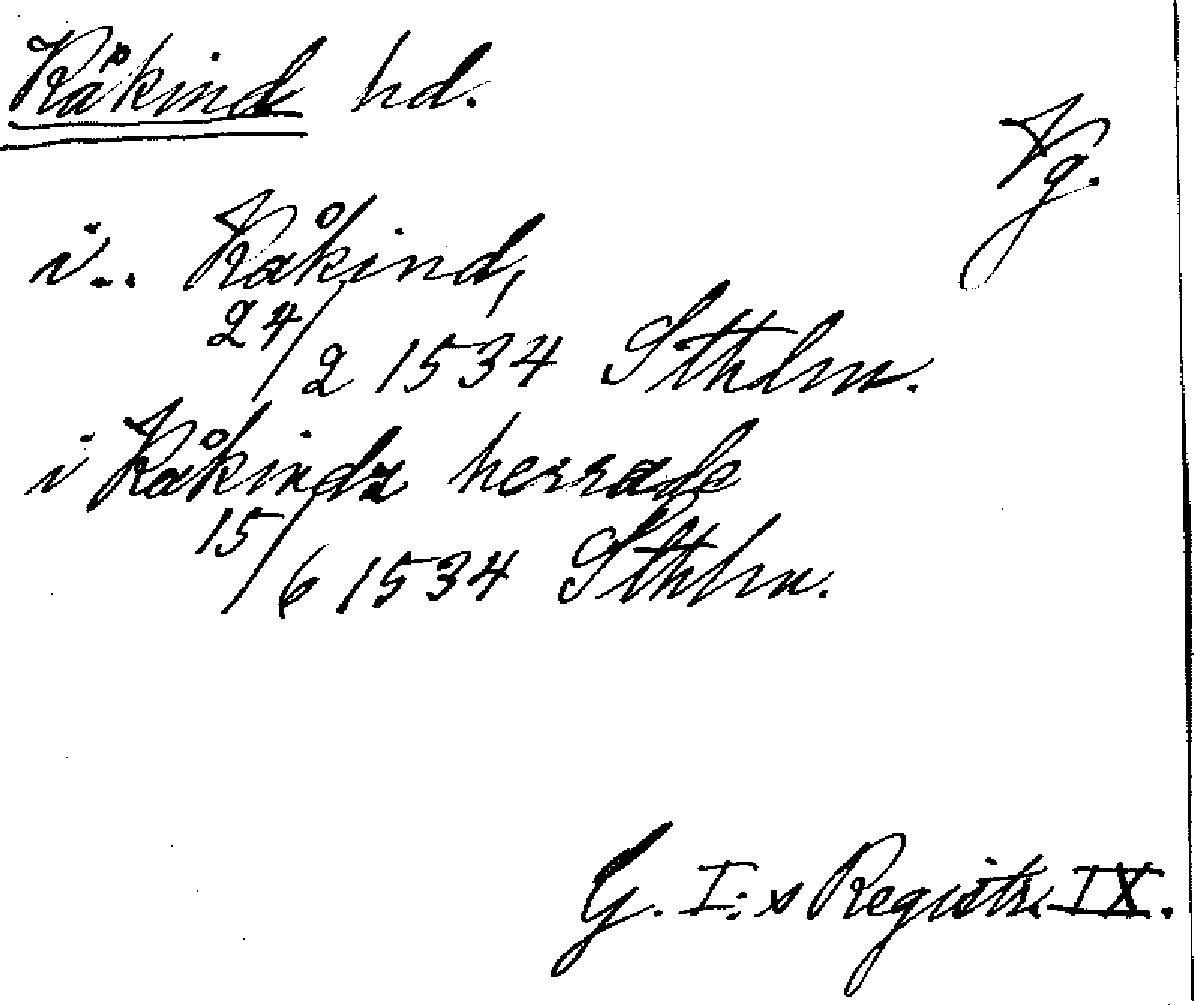 Kåkind hd.
Vg.
i.. Kåkind,
24/2 1534 Sthlm.
i Kåkindz herrade
15/6 1534 Sthlm.
G. I:s Registr. IX.